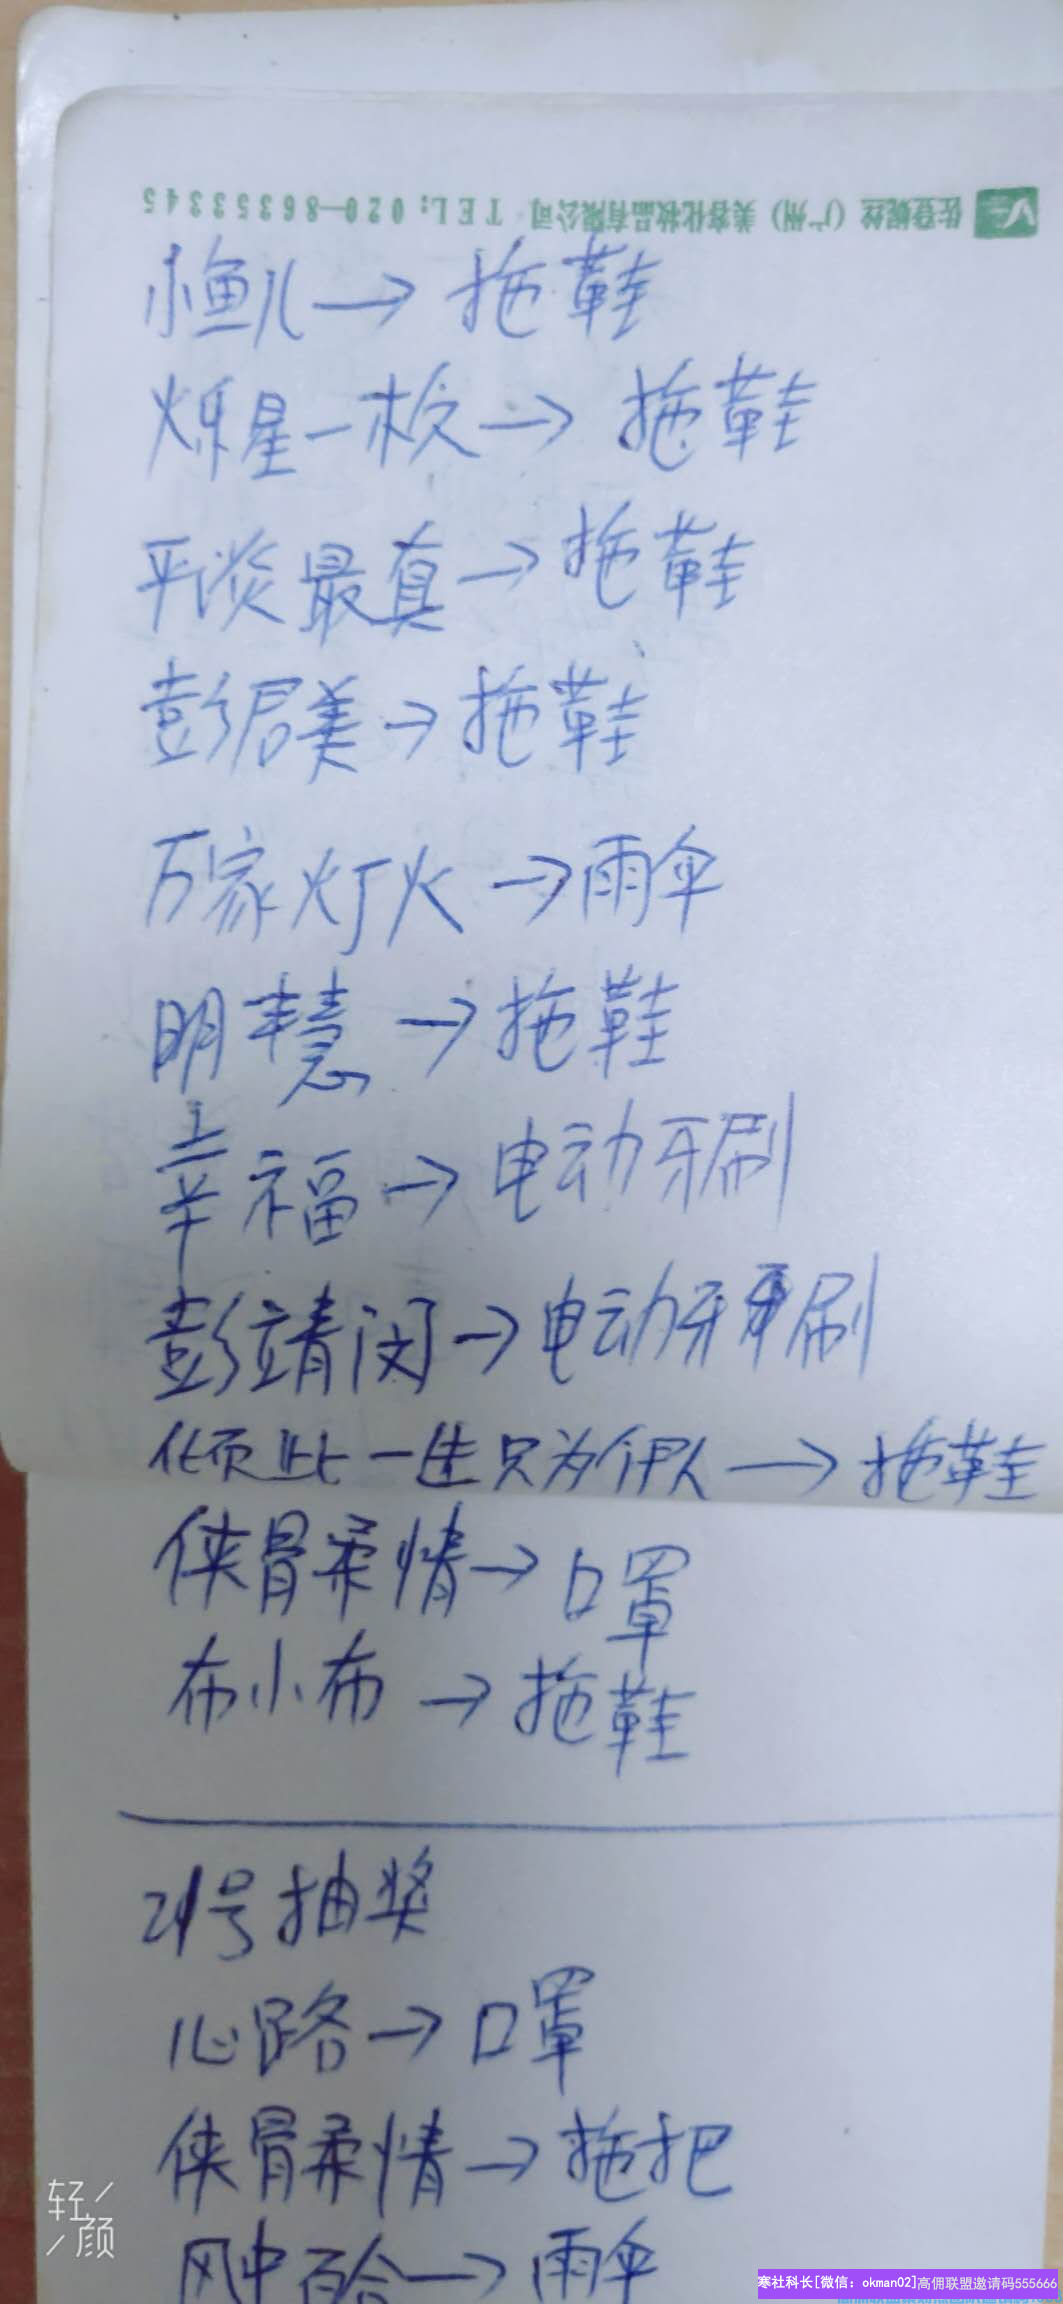 佐登妮丝（广州）美容化妆品有限公司 TEL:020-86355345
小鱼儿→拖鞋
烁星一枚→拖鞋
平淡最真→拖鞋
彭君美→拖鞋
万家灯火→雨伞
明慧→拖鞋
幸福→电动牙刷
彭靖闵→电动牙刷
倾此一生只为伊人→拖鞋
侠骨柔情→口罩
布小布→拖鞋
21号抽奖
心路→口罩
侠骨柔情→拖把
风中百合→雨伞
轻颜
寒社科长[微信：okman02]高佣联盟邀请码555666